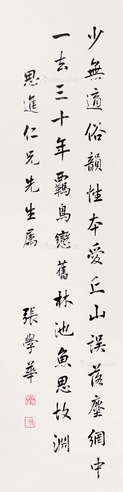 少無適俗韻性本愛丘山誤落塵網中
一去三十年羈鳥戀舊林池魚思故淵
思進仁兄先生屬
張學華